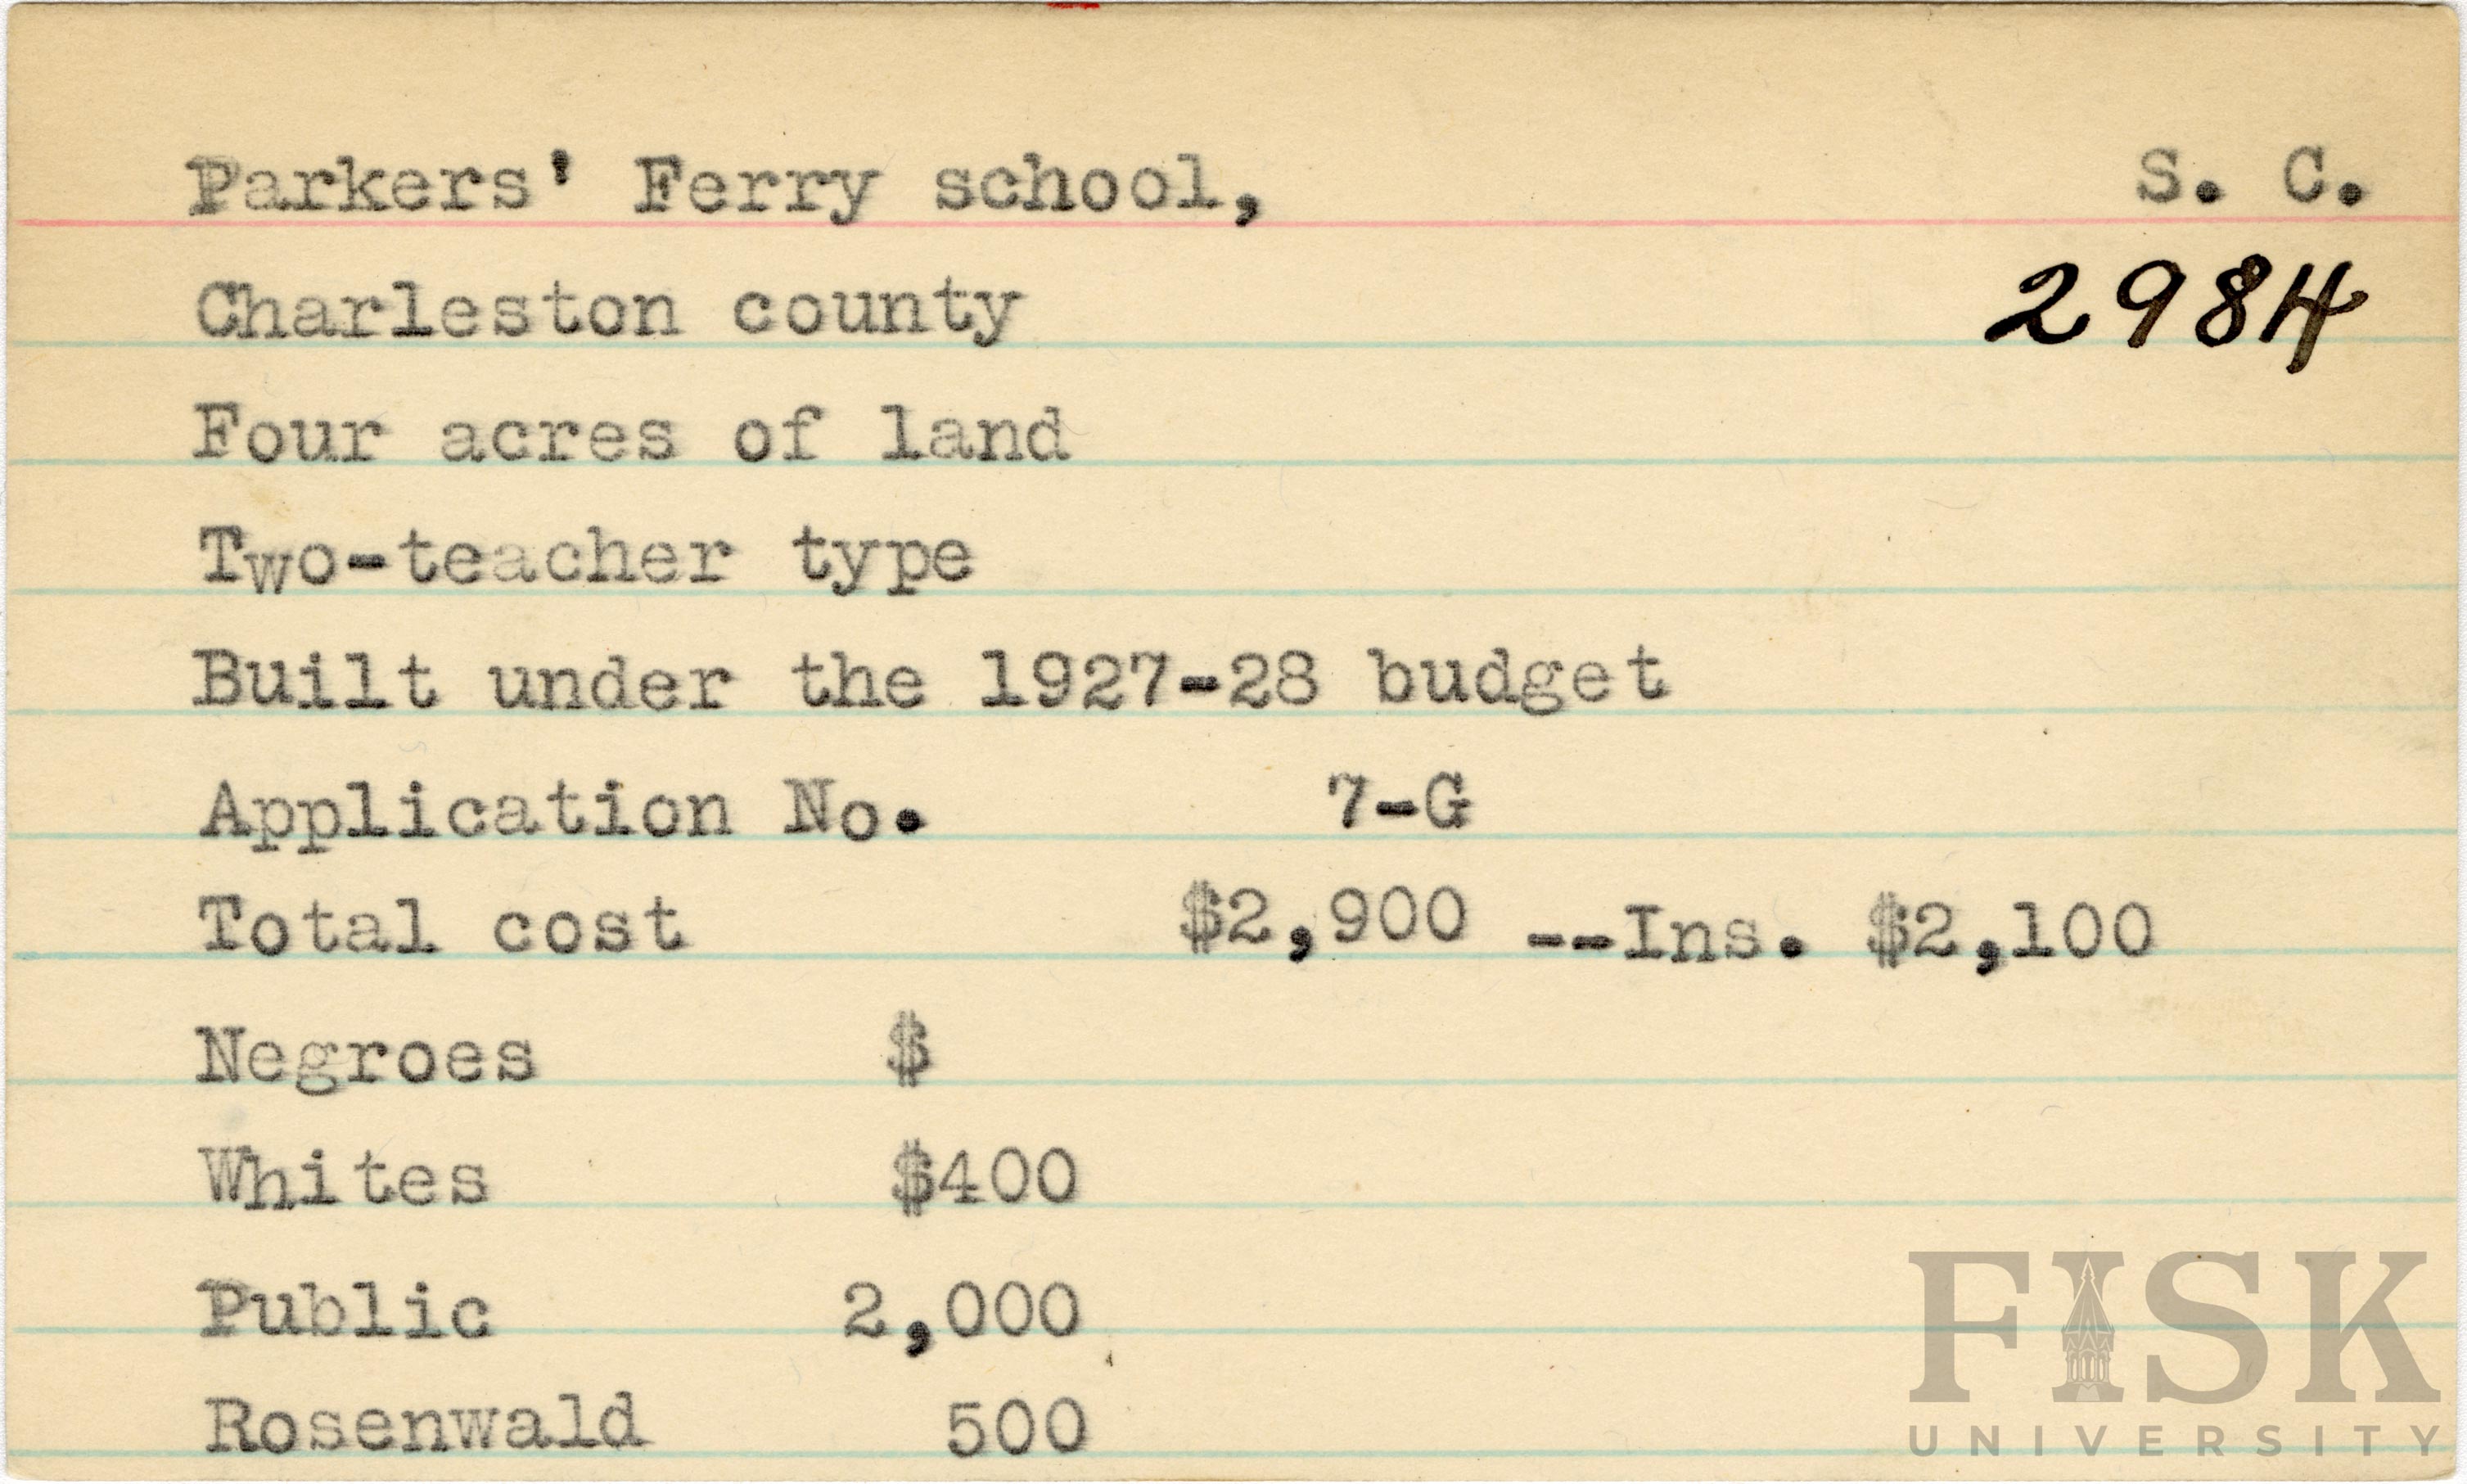 Parkers' Ferry school, S. C.
Charleston county 2984
Four acres of land
Two-teacher type
Built under the 1927-28 budget
Application No. 7-G
Total cost $2,900 --Ins. $2,100
Negroes $
Whites $400
Public 2,000
Rosenwald 500
FISK
UNIVERSITY